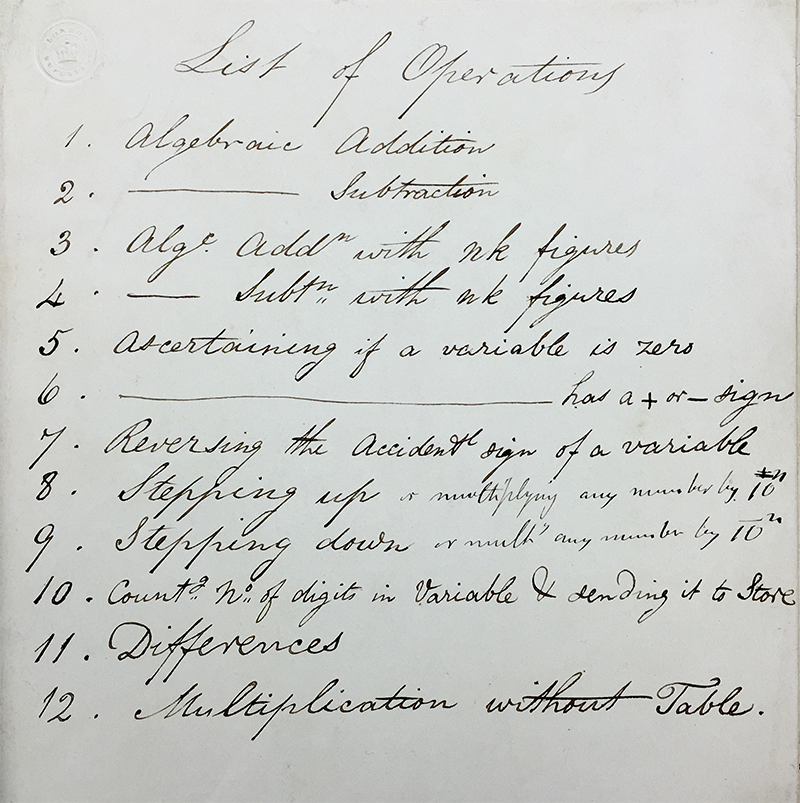 List of Operations
1. Algebraic Addition
2. ——— Subtraction
3. Algc. Addn with nk figures
4. — Subtn with nk figures
5. Ascertaining if a variable is zero
6. ——— has a + or – sign
7. Reversing the Accidentl sign of a variable
8. Stepping up or multiplying any number by 10n
9. Stepping down or multg any number by 10n
10. Countg. No. of digits in Variable & sending it to Store
11. Differences
12. Multiplication without Table.